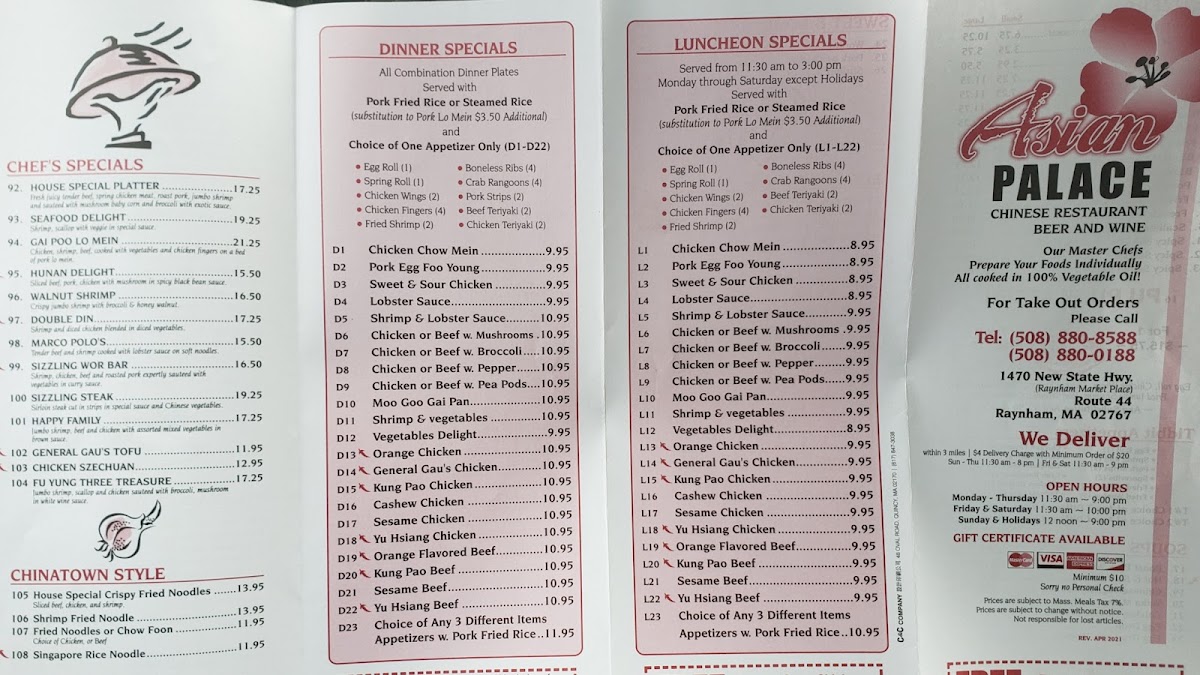 CHEF'S SPECIALS
92. HOUSE SPECIAL PLATTER ..................17.25
Fresh juicy tender beef, spring chicken meat, roast pork, jumbo shrimp
and sauteed with mushroom baby corn and broccoli with exotic sauce.
93. SEAFOOD DELIGHT ..................19.25
Shrimp, scallop with veggie in special sauce.
94. GAI POO LO MEIN ..................21.25
Chicken, shrimp, beef, cooked with vegetables and chicken fingers on a bed
of pork lo mein.
95. HUNAN DELIGHT ..................15.50
Sliced beef, pork, chicken with mushroom in spicy black bean sauce.
96. WALNUT SHRIMP ..................16.50
Crispy jumbo shrimp with broccoli & honey walnut.
97. DOUBLE DIN ..................17.25
Shrimp and diced chicken blended in diced vegetables.
98. MARCO POLO'S ..................15.50
Tender beef and shrimp cooked with lobster sauce on soft noodles.
99. SIZZLING WOR BAR ..................16.50
Shrimp, chicken, beef and roasted pork expertly sauteed with
vegetables in curry sauce.
100 SIZZLING STEAK ..................19.25
Sirloin steak cut in strips in special sauce and Chinese vegetables.
101 HAPPY FAMILY ..................17.25
Jumbo shrimp, beef and chicken with assorted mixed vegetables in
brown sauce.
102 GENERAL GAU'S TOFU ..................11.95
103 CHICKEN SZECHUAN ..................12.95
104 FU YUNG THREE TREASURE ..................17.25
Jumbo shrimp, scallop and chicken sauteed with broccoli, mushroom
in white wine sauce.
CHINATOWN STYLE
105 House Special Crispy Fried Noodles .......13.95
Sliced beef, chicken, and shrimp.
106 Shrimp Fried Noodle ..................13.95
107 Fried Noodles or Chow Foon ..................11.95
Choice of Chicken, or Beef
108 Singapore Rice Noodle..................11.95
DINNER SPECIALS
All Combination Dinner Plates
Served with
Pork Fried Rice or Steamed Rice
(substitution to Pork Lo Mein $3.50 Additional)
and
Choice of One Appetizer Only (D1-D22)
• Egg Roll (1)
• Spring Roll (1)
• Chicken Wings (2)
• Chicken Fingers (4)
• Fried Shrimp (2)
• Boneless Ribs (4)
• Crab Rangoons (4)
• Pork Strips (2)
• Beef Teriyaki (2)
• Chicken Teriyaki (2)
D1 Chicken Chow Mein ..............9.95
D2 Pork Egg Foo Young..............9.95
D3 Sweet & Sour Chicken ..............9.95
D4 Lobster Sauce..............9.95
D5 Shrimp & Lobster Sauce..............10.95
D6 Chicken or Beef w. Mushrooms .10.95
D7 Chicken or Beef w. Broccoli.....10.95
D8 Chicken or Beef w. Pepper.......10.95
D9 Chicken or Beef w. Pea Pods....10.95
D10 Moo Goo Gai Pan..............10.95
D11 Shrimp & vegetables ..............10.95
D12 Vegetables Delight..............9.95
D13 Orange Chicken ..............10.95
D14 General Gau's Chicken..............10.95
D15 Kung Pao Chicken ..............10.95
D16 Cashew Chicken ..............10.95
D17 Sesame Chicken ..............10.95
D18 Yu Hsiang Chicken ..............10.95
D19 Orange Flavored Beef..............10.95
D20 Kung Pao Beef ..............10.95
D21 Sesame Beef..............10.95
D22 Yu Hsiang Beef ..............10.95
D23 Choice of Any 3 Different Items
Appetizers w. Pork Fried Rice..11.95
LUNCHEON SPECIALS
Served from 11:30 am to 3:00 pm
Monday through Saturday except Holidays
Served with
Pork Fried Rice or Steamed Rice
(substitution to Pork Lo Mein $3.50 Additional)
and
Choice of One Appetizer Only (L1-L22)
• Egg Roll (1)
• Spring Roll (1)
• Chicken Wings (2)
• Chicken Fingers (4)
• Fried Shrimp (2)
• Boneless Ribs (4)
• Crab Rangoons (4)
• Beef Teriyaki (2)
• Chicken Teriyaki (2)
L1 Chicken Chow Mein ..............8.95
L2 Pork Egg Foo Young..............8.95
L3 Sweet & Sour Chicken ..............8.95
L4 Lobster Sauce..............8.95
L5 Shrimp & Lobster Sauce..............9.95
L6 Chicken or Beef w. Mushrooms .9.95
L7 Chicken or Beef w. Broccoli.......9.95
L8 Chicken or Beef w. Pepper.......9.95
L9 Chicken or Beef w. Pea Pods.....9.95
L10 Moo Goo Gai Pan..............9.95
L11 Shrimp & vegetables ..............9.95
L12 Vegetables Delight..............8.95
L13 Orange Chicken ..............9.95
L14 General Gau's Chicken..............9.95
L15 Kung Pao Chicken ..............9.95
L16 Cashew Chicken ..............9.95
L17 Sesame Chicken ..............9.95
L18 Yu Hsiang Chicken ..............9.95
L19 Orange Flavored Beef..............9.95
L20 Kung Pao Beef ..............9.95
L21 Sesame Beef..............9.95
L22 Yu Hsiang Beef ..............9.95
L23 Choice of Any 3 Different Items
Appetizers w. Pork Fried Rice..10.95
Asian
PALACE
CHINESE RESTAURANT
BEER AND WINE
Our Master Chefs
Prepare Your Foods Individually
All cooked in 100% Vegetable Oil!
For Take Out Orders
Please Call
Tel: (508) 880-8588
(508) 880-0188
1470 New State Hwy.
(Raynham Market Place)
Route 44
Raynham, MA 02767
We Deliver
within 3 miles | $4 Delivery Charge with Minimum Order of $20
Sun - Thu 11:30 am - 8 pm | Fri & Sat 11:30 am - 9 pm
OPEN HOURS
Monday - Thursday 11:30 am ~ 9:00 pm
Friday & Saturday 11:30 am ~ 10:00 pm
Sunday & Holidays 12 noon ~ 9:00 pm
GIFT CERTIFICATE AVAILABLE
MasterCard VISA AMERICAN EXPRESS DISCOVER
Minimum $10
Sorry no Personal Check
Prices are subject to Mass. Meals Tax 7%.
Prices are subject to change without notice.
Not responsible for lost articles.
REV. APR 2021